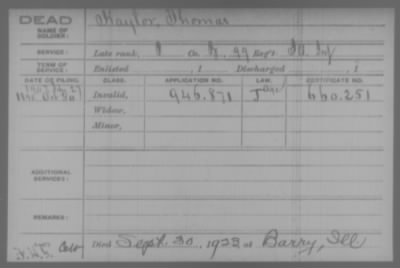 DEAD
NAME OF SOLDIER: Naylor, Thomas
SERVICE: Late rank, Co. 99 Reg't Ill Inf
TERM OF SERVICE: Enlisted , 1 Discharged , 1
DATE OF FILING. CLASS. APPLICATION NO. LAW. CERTIFICATE NO.
Invalid, 946.871 J 660.251
Widow,
Minor,
ADDITIONAL SERVICES:
REMARKS:
Died Sept. 30, 1923 at Barry, Ill